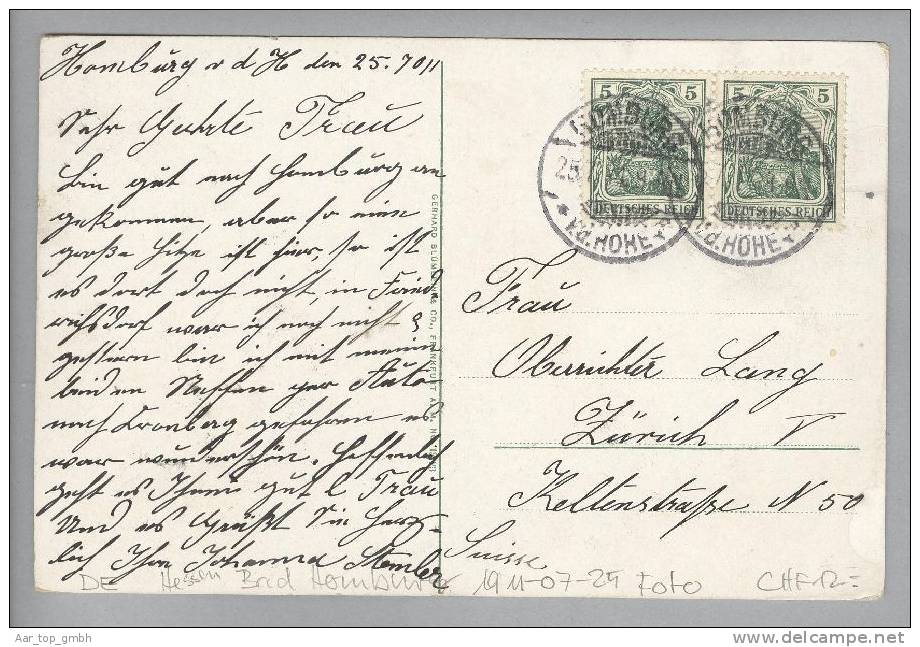 Homburg v d H den 25. 7011
Sehr Geehrte Frau
bin gut nach Homburg an
gekommen, aber so eine
große Hitze ist hier, so ist
es dort doch nicht, in Fried
richsdorf war ich noch nicht
gestern bin ich mit meinen
beiden Neffen per Auto
nach Cronberg gefahren es
war wunderschön. Hoffendlich
geht es Ihnen gut l Frau
Und es Grüßt Sie herz-
lich Ihre Johanna Stemler
GERHARD BLÜMLEIN & CO., FRANKFURT A. M.
5 5
DEUTSCHES REICH
5 5
DEUTSCHES REICH
HOMBURG
25.
* v.d.HÖHE *
HOMBURG
v.d.HÖHE
Frau
Oberrichter Lang
Zürich V
Keltenstraße N 50
Suisse
DE Hessen Bad Homburg 1911-07-25 FOTO CHF 12.=
Aar_top_gmbh
www.delcampe.net